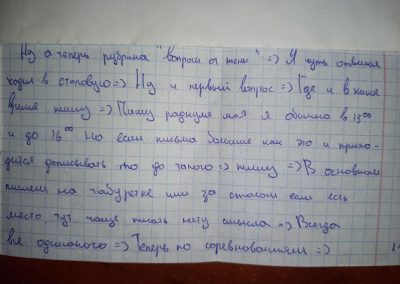 Ну а теперь рубрика "вопросы от жены" => Я чуть отвлёкся
ходил в столовую => Ну и первый вопрос => Где и в какое
время пишу => Пишу родную моя я обычно в 13⁰⁰
и до 16⁰⁰ но если письма большие как это и прихо-
дится дописывать то до запого => пишу => В основном
пишем на табуретке или за столом если есть
место тут чаще писать нету смысла => Всегда
всё одинаково => Теперь по соревнованиям =>